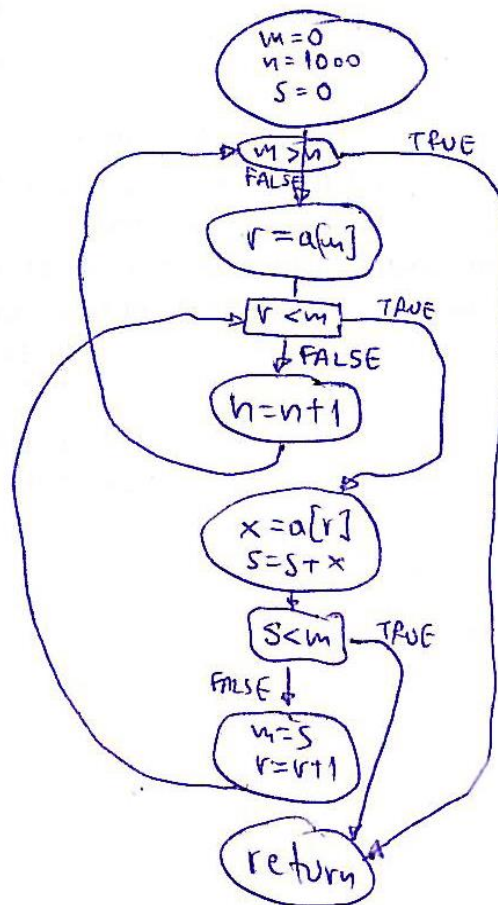 m=0
n=1000
s=0
m>n
TRUE
FALSE
r=a[m]
r<m
TRUE
FALSE
n=n+1
x=a[r]
s=s+x
s<m
TRUE
FALSE
m=s
r=r+1
return